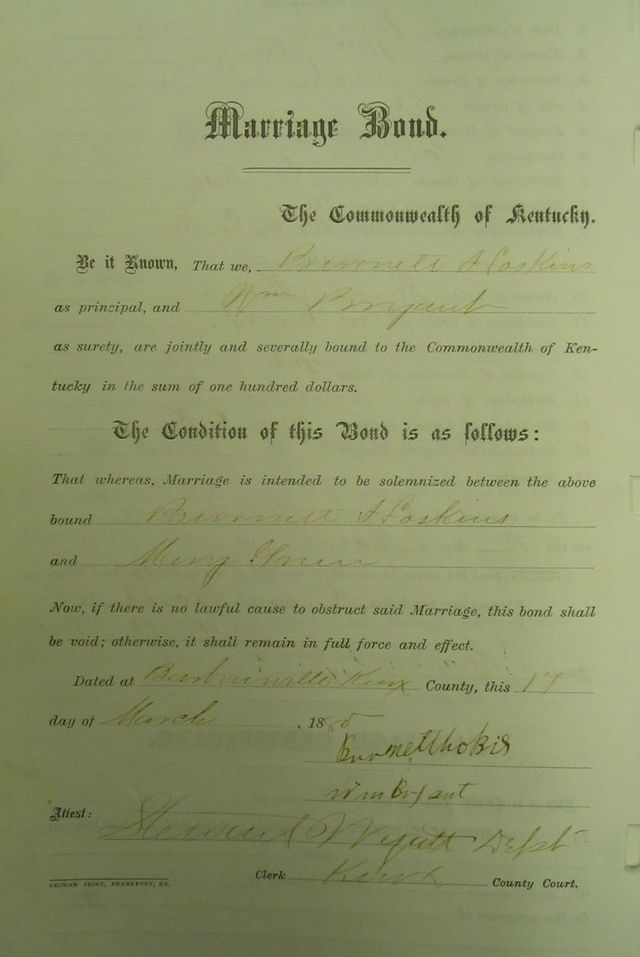 Marriage Bond.
The Commonwealth of Kentucky.
Be it Known, That we, Burnett Hoskins
as principal, and Wm Bryant
as surety, are jointly and severally bound to the Commonwealth of Ken-
tucky in the sum of one hundred dollars.
The Condition of this Bond is as follows:
That whereas, Marriage is intended to be solemnized between the above
bound Burnett Hoskins
and Mary
Now, if there is no lawful cause to obstruct said Marriage, this bond shall
be void; otherwise, it shall remain in full force and effect.
Dated at Barbourville Knox County, this 17
day of March, 188
Wm Bryant
Attest: Stewart Wyatt Dept
Clerk Knox County Court.
YEOMAN PRINT, FRANKFORT, KY.